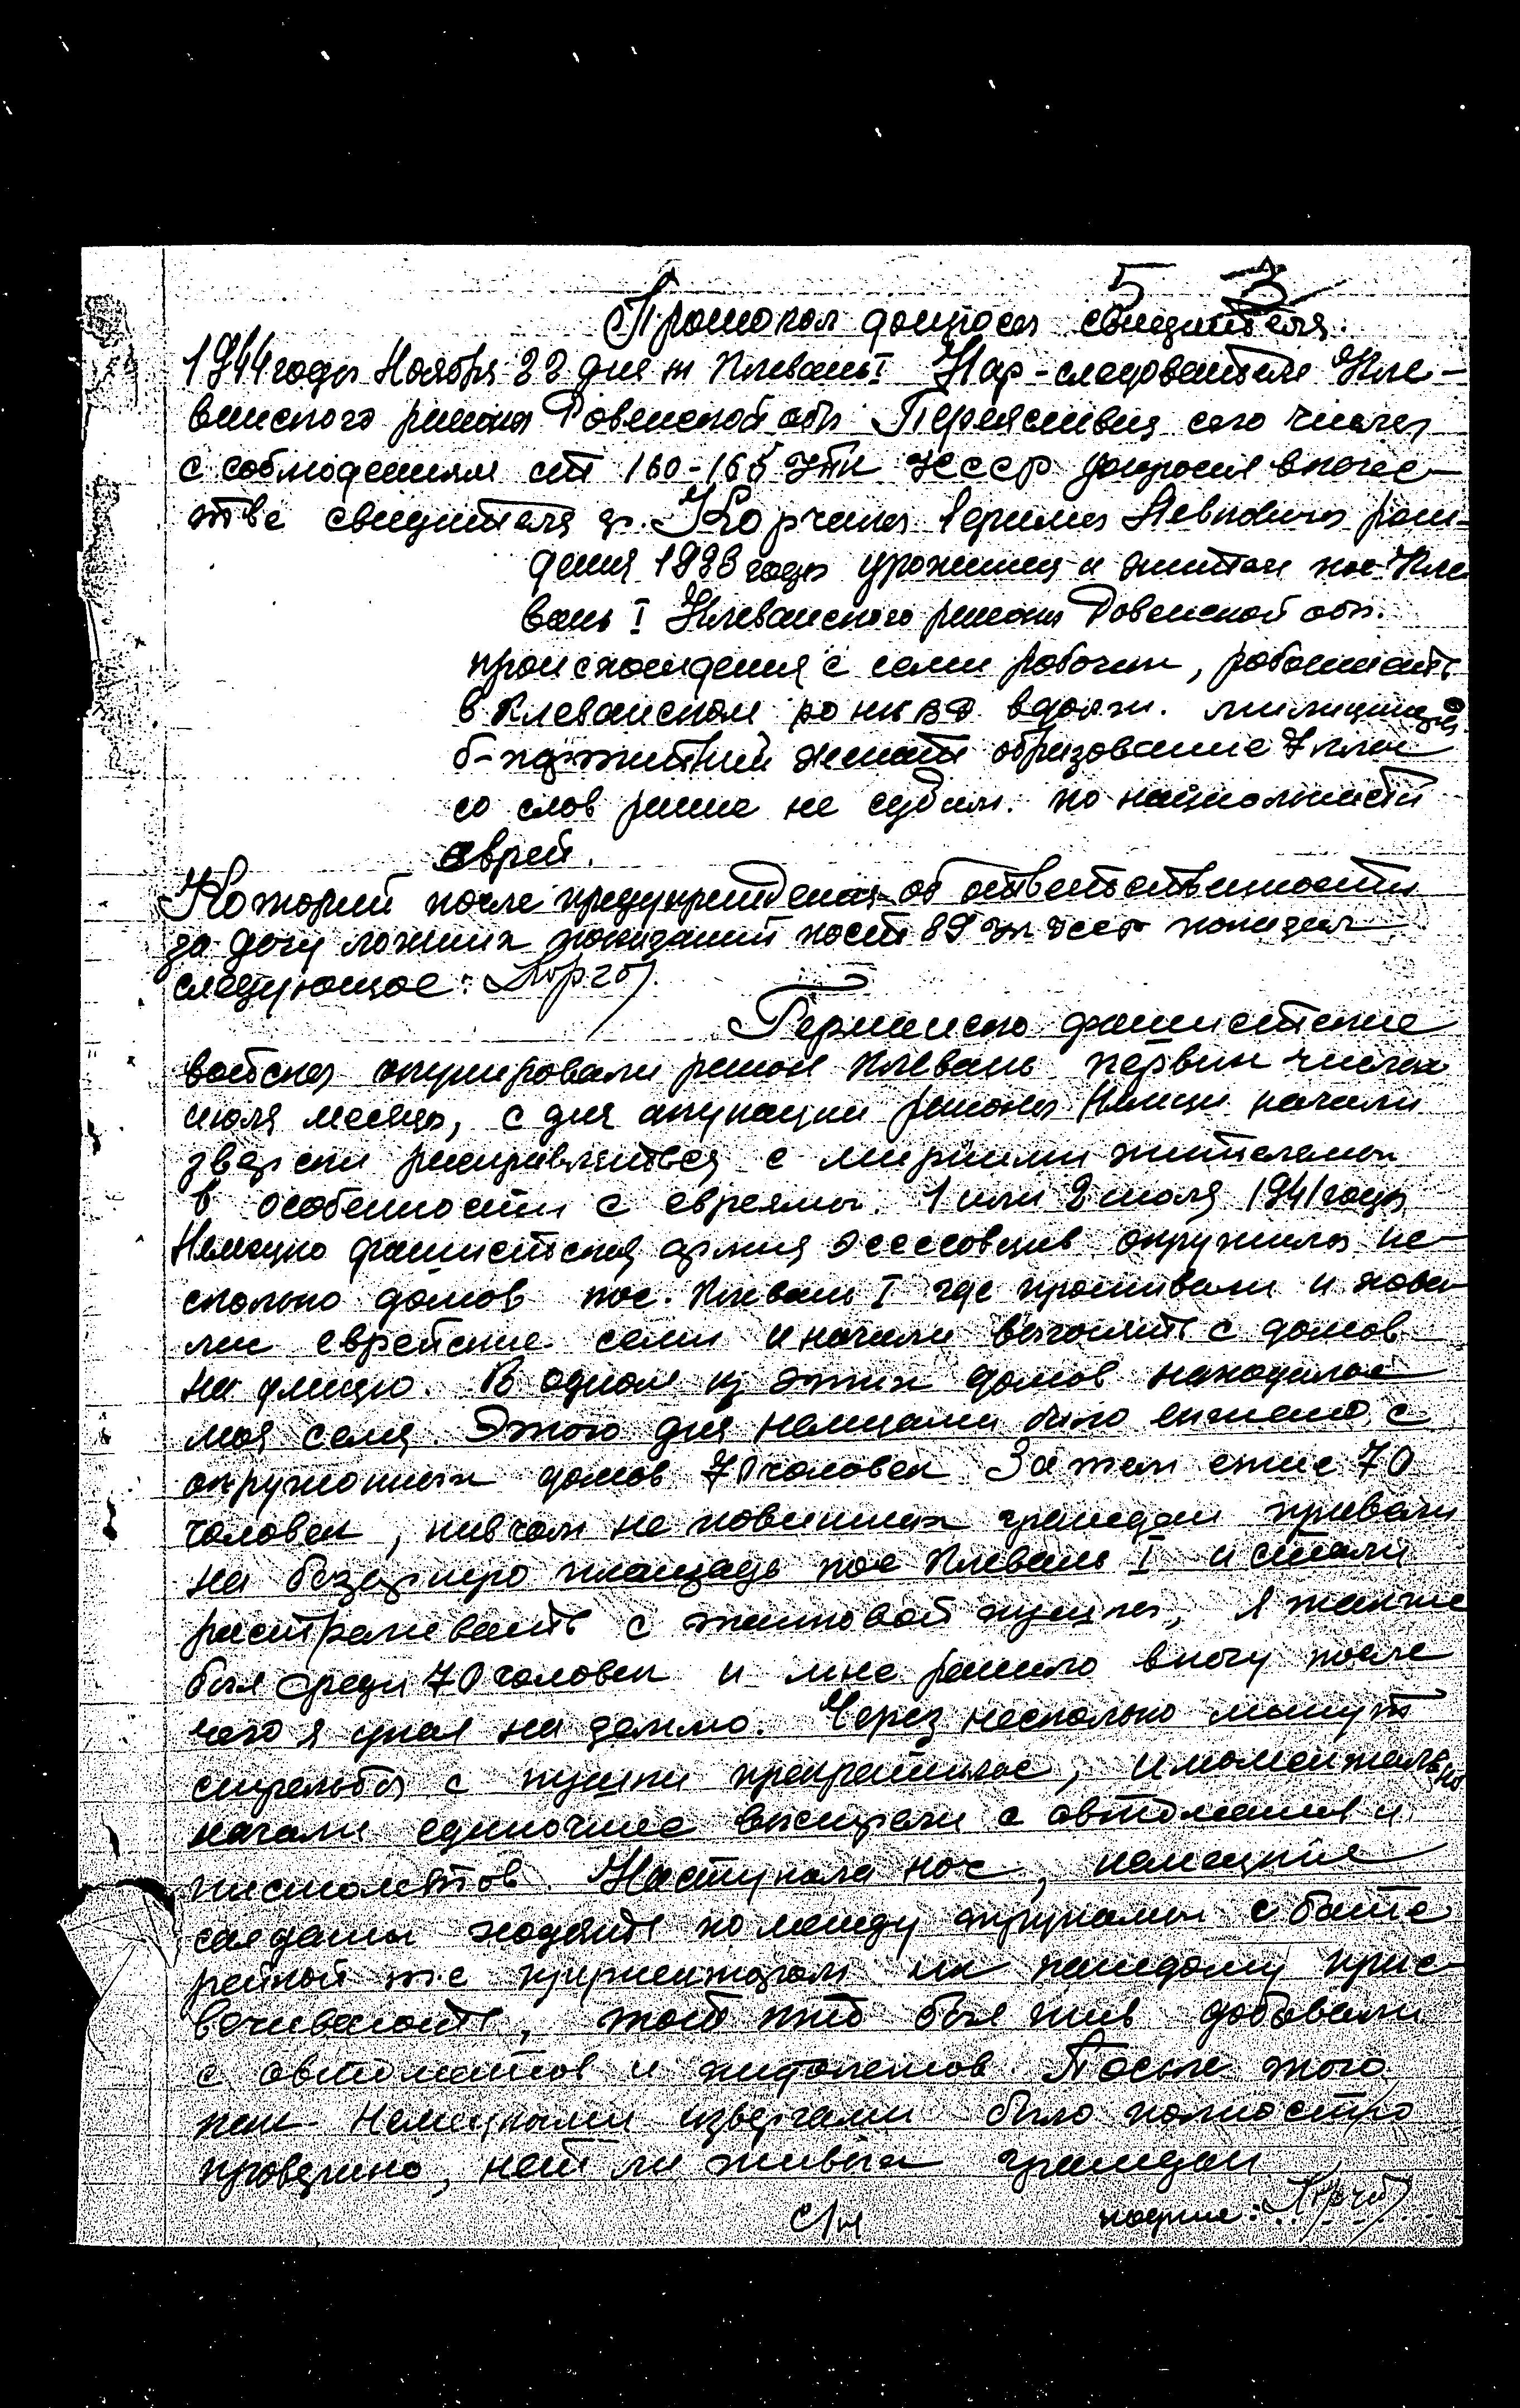 5 3
Протокол допроса свидителя.
1944 года Ноября 22 дня м Клевань I Нар-следователь Кле-
ванского района Ровенской обл сего числа
с соблюдением ст 160-165 УПК УССР допросил вкачес-
тве свидителя гр. Корчака Левковича рож-
дения года уроженец и житель пос Кле
вань I Клеванского района Ровенской обл.
происхождения с семи рабочих, работаить
в Клеванском РО НКВД вдолжн. милиционера
б-партитний женатъ образование 7 клас
со слов ранее не судим. по национальности
еврей.
Которий после предупреждения об ответственности
за дачу ложних показаний по ст 89 УК УССР показал
следующое:
Германско фашистские
войска окупировали район Клевань первих числах
июля месяца, с дня окупации района Немци начали
зверски расправляться с мирними жителями
в особенности с евреями. 1 или 2 июля 1941 года
Немецко фашистская армия эссесовцив окружила не-
сколько домов пос. Клевань I где проживали
еврейские семи и начали вигонять с домов
на улицю. В одном из этих домов находилас
моя семя. Этого дня немцами било сигнано с
окружонних домов 70 человек Затем етие 70
человек, нивчом не повинних граждан привели
на базарную площадь пос Клевань I и стали
растреливать с танковой пушки, я также
бил среди 70 человек и мне ранило вногу после
чего я упал на землю. Через несколько минут
стрельба с пушки прекратилас, и моментально
начали единочние вистрели с автоматив и
пистолетов. Наступала ноч, немецкие
салдати ходять по между трупами с бате
рейкой т.е. их каждому прис-
вечивають, тот кто бил жив добивали
с автоматов и пистолетов. После того
как немецкими извергами било полностю
проверено, нет ли живих граждан
с/н подпис: